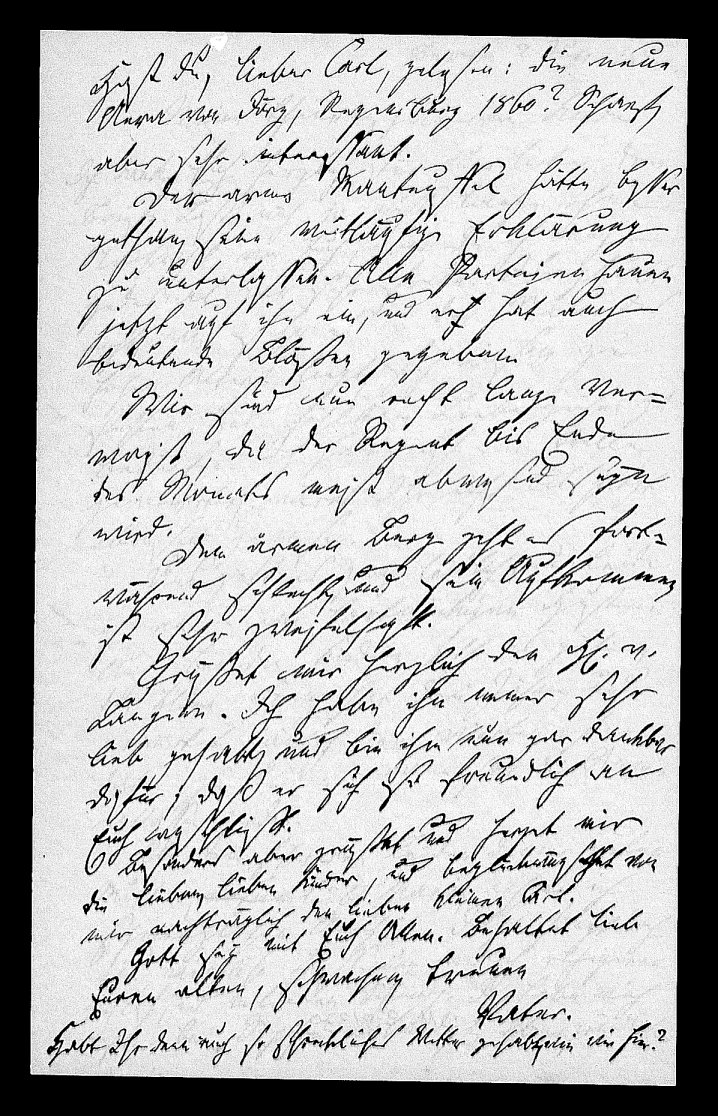 Hast du, lieber Carl, gelesen: die neue
Aera von Jörg, Regensburg 1860? Scharf,
aber sehr interessant.
Der arme Manteuffel hätte besser
gethan, seine weitläufige Erklärung
zu unterlassen. Alle Partejen hauen
jetzt auf ihn ein, und er hat auch
bedeutende Blößen gegeben.
Wir sind nun recht lange ver=
waist, da der Regent bis Ende
des Monats meist abwesend seyn
wird.
Dem armen Berg geht es fort=
während schlecht, und sein Aufkommen
ist sehr zweifelhaft.
Grüßet mir herzlich den H. v.
Langenn. Ich habe ihn immer sehr
lieb gehabt, und bin ihm nun gar dankbar
dafür, daß er sich so freundlich an
Euch anschließt.
Besonders aber grüßet und herzet mir
die lieben, lieben Kinder, und beglückwünschet von
mir nachträglich den lieben kleinen Carl.
Gott sey mit Euch Allen. Behaltet lieb
Euren alten, schwachen, treuen
Vater.
Habt Ihr denn auch so schreckliches Wetter gehabt, wie wir hier?